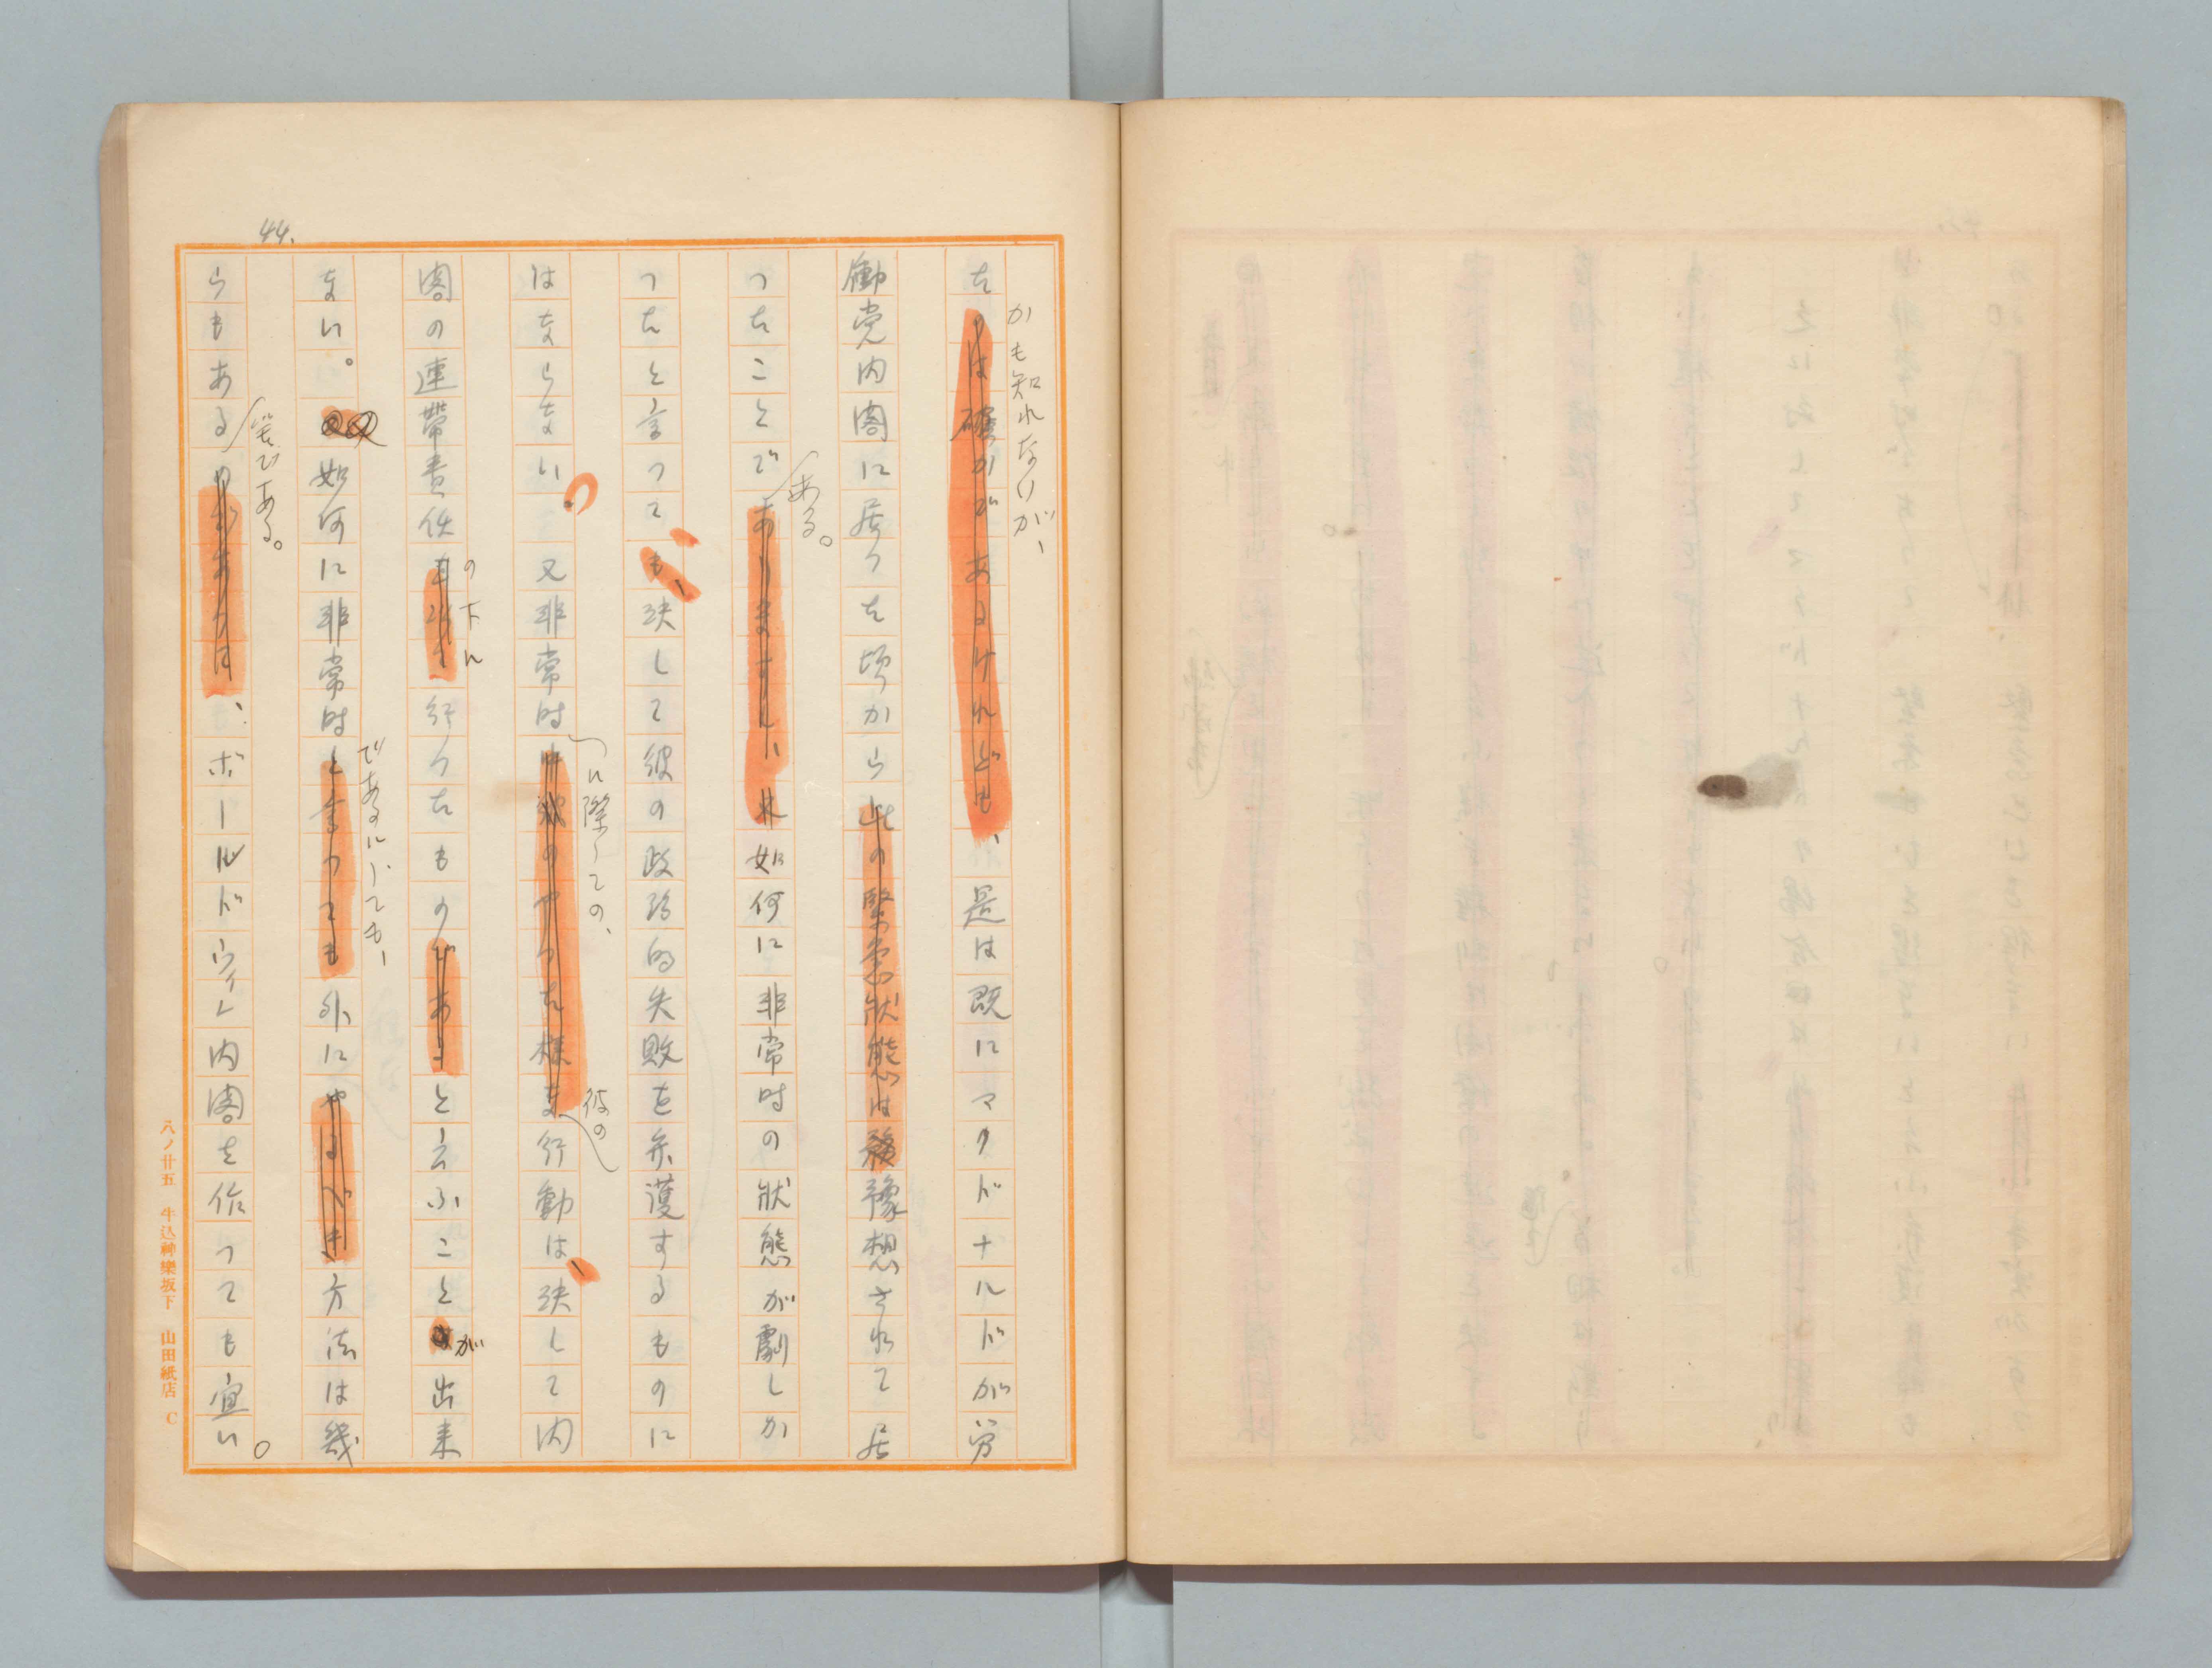 44.
かも知れないが、
た　　　　　　　　　　、是は既にマクドナルドが労
働党内閣に居つた頃から此の緊急狀態は　豫想されて居
ある。
つたことでありますし　如何に非常時の狀態が劇しか
つたと言つても、決して彼の政治的失敗を弁護するものに
に際しての、彼の
はならない。又非常時　　のやつた様な行動は、決して内
の下に
閣の連帯責任　　行つたものであ　と云ふことが出来
であるにしても、
ない。如何に非常時と言つても外にやるべき方法は幾
筈である。
らもある　　　　、ボールドウィン内閣を作つても宜い。
八ノ廿五　牛込神樂坂下　山田紙店　C